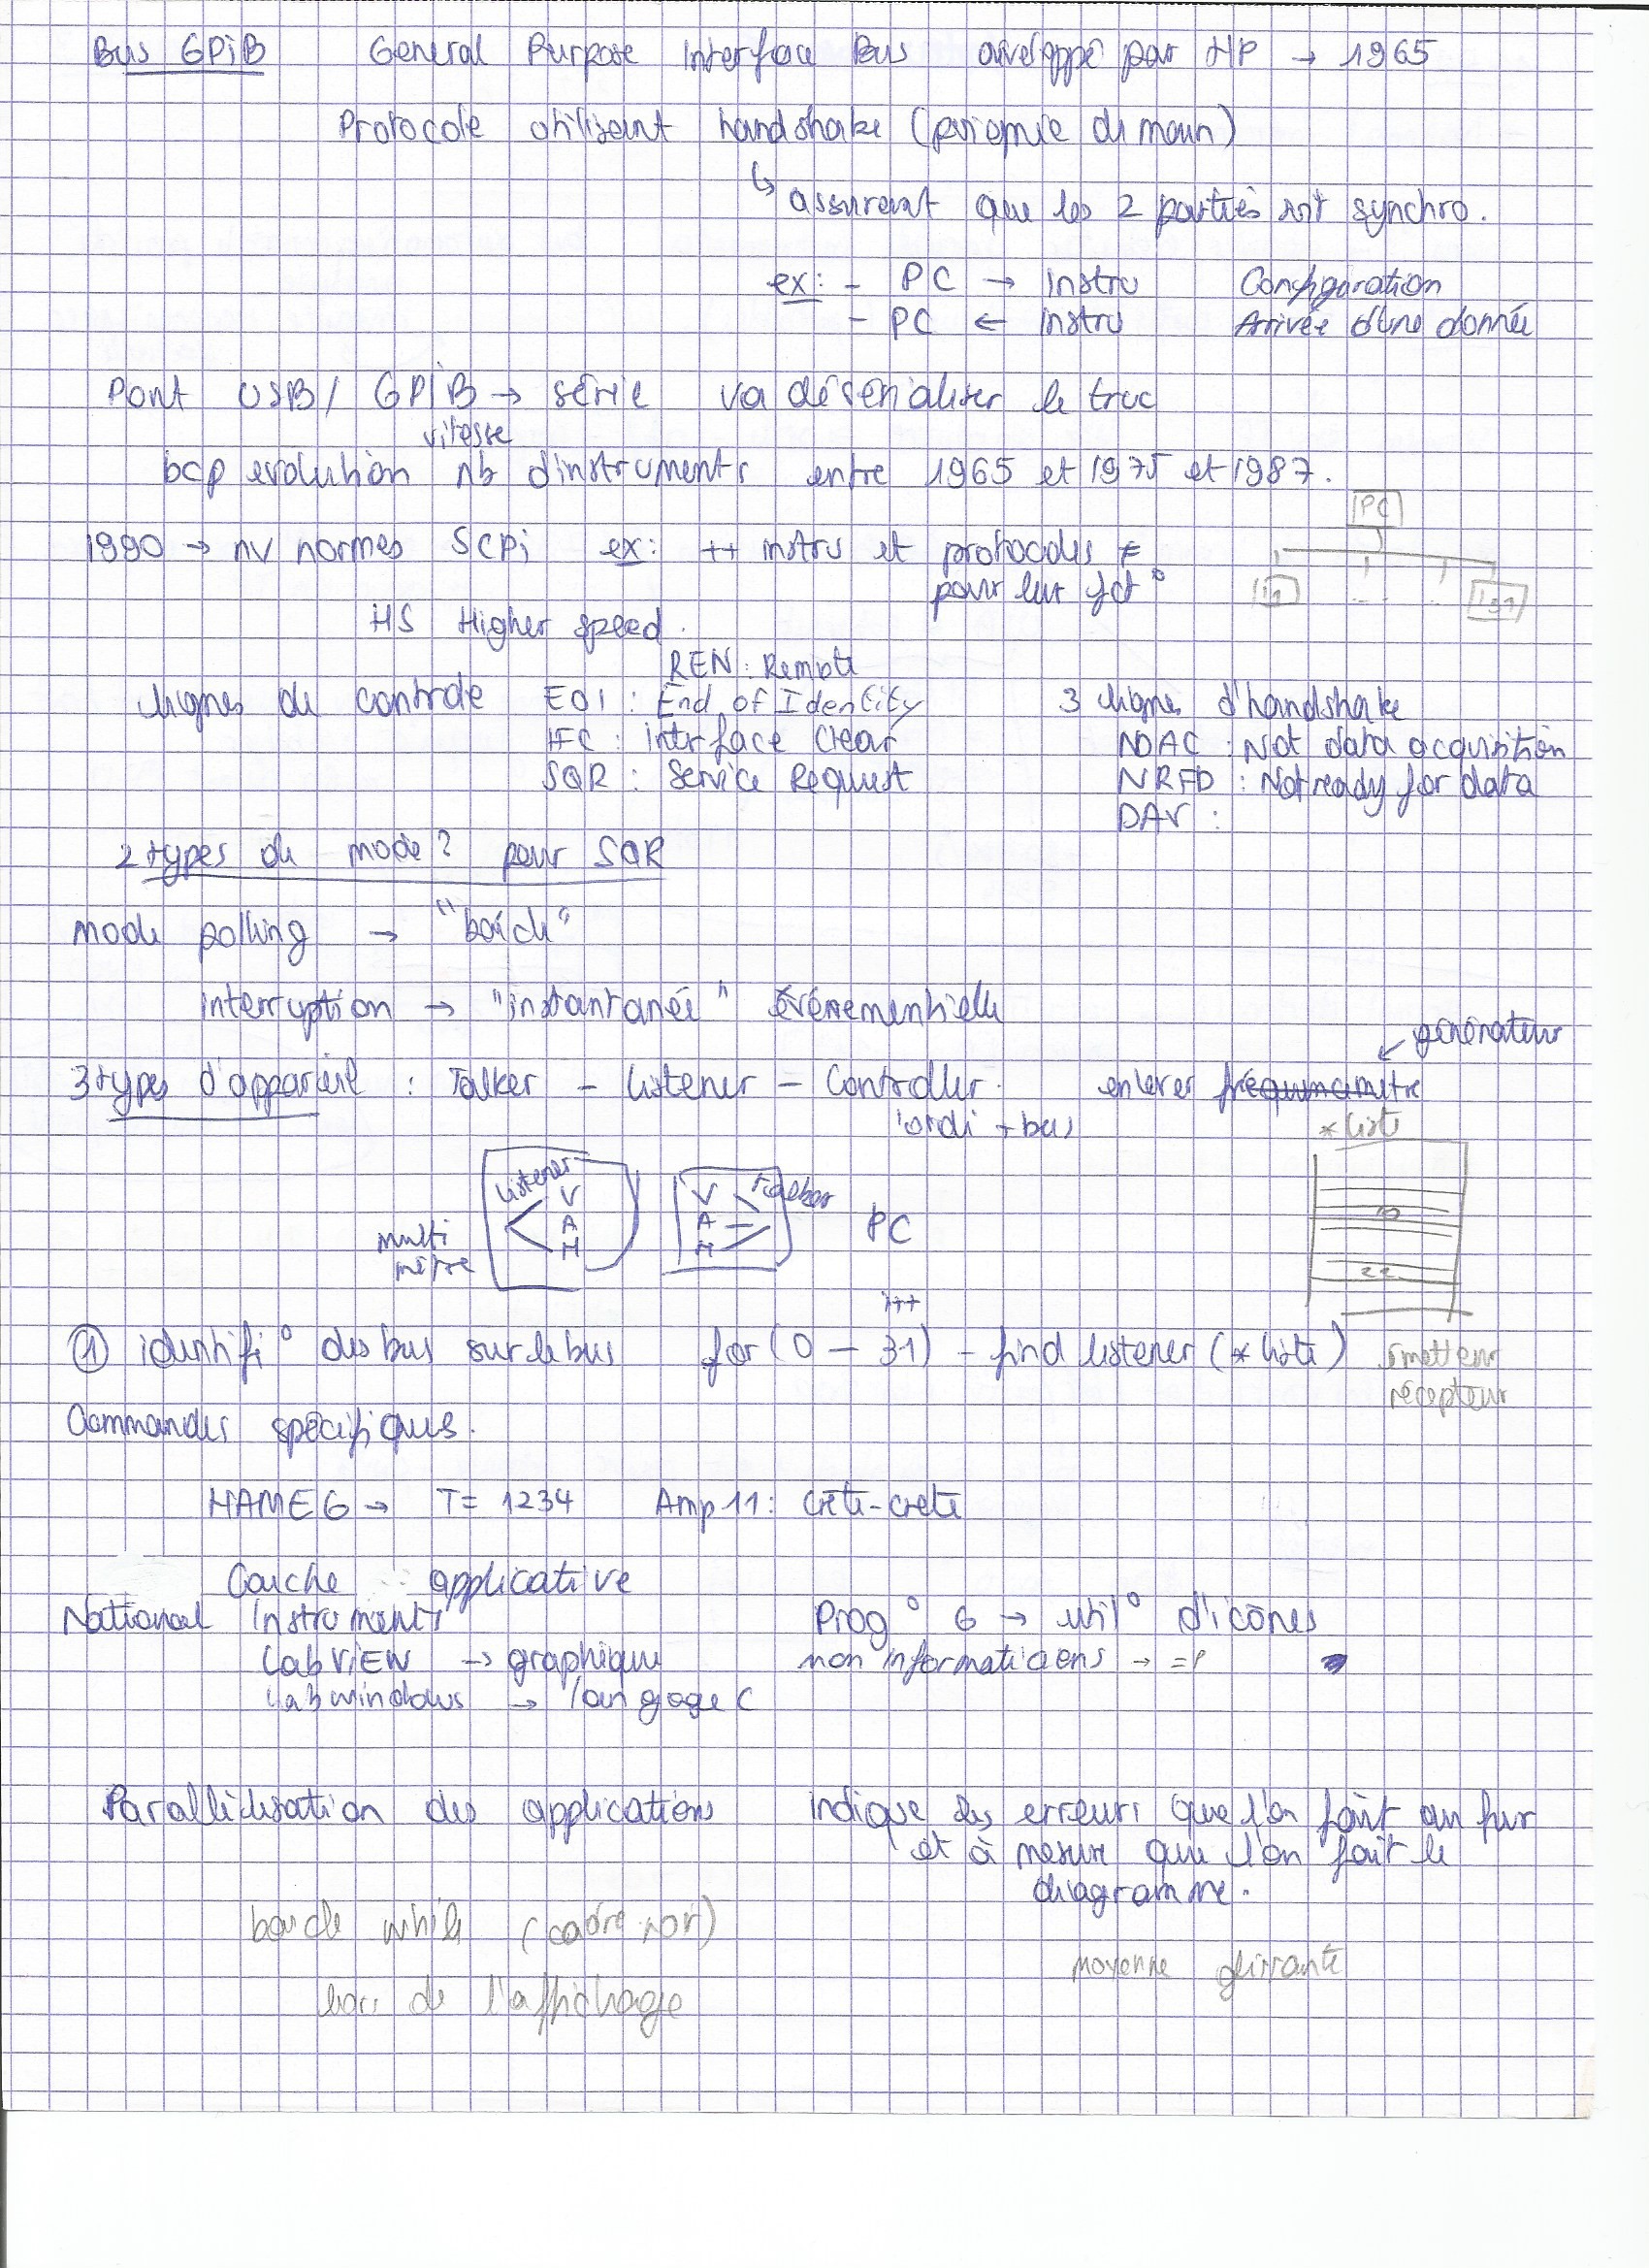 Bus GPiB General Purpose Interface Bus développé par HP → 1965
Protocole utilisant handshake (poignée de main)
↳ assurant que les 2 parties sont synchro.
ex: - PC → Instru Configuration
- PC ← instru Arrivée d'une donnée
Pont USB/ GPIB → série va désérialiser le truc
vitesse
bcp evolution nb d'instruments entre 1965 et 1975 et 1987.
PC
1990 → nv normes SCPi ex: ++ instrus et protocoles ≠
pour leur fct°
HS Higher speed.
REN : Remote
Lignes de controle EOI : End of Identity 3 lignes d'handshake
IFC : interface Clear NDAC : Not data acquisition
SQR : Service Request NRFD : Not ready for data
DAV :
2 types de mode? pour SQR
mode polling → "boucle"
interruption → "instantanée" événementielle
générateur
3 types d'appareil : Talker - Listener - Controller. enlever fréquencemètre
l'ordi + bus
* liste
Listener Talker
V V
A A
multi mètre PC
10
22
i++
① identifi° des bus sur le bus for (0 - 31) - find listener (* liste) émetteur
récepteur
Commandes spécifiques.
HAMEG → T= 1234 Amp 11: Crête-crête
Couche applicative
National Instruments Prog° G → util° d'icônes
LabViEW → graphique non informaticiens →
Labwindows → langage C
Parallélisation des applications indique les erreurs que l'on fait au fur
et à mesure que l'on fait le
diagramme.
boucle while (cadre noir)
moyenne glissante
hors de l'affichage